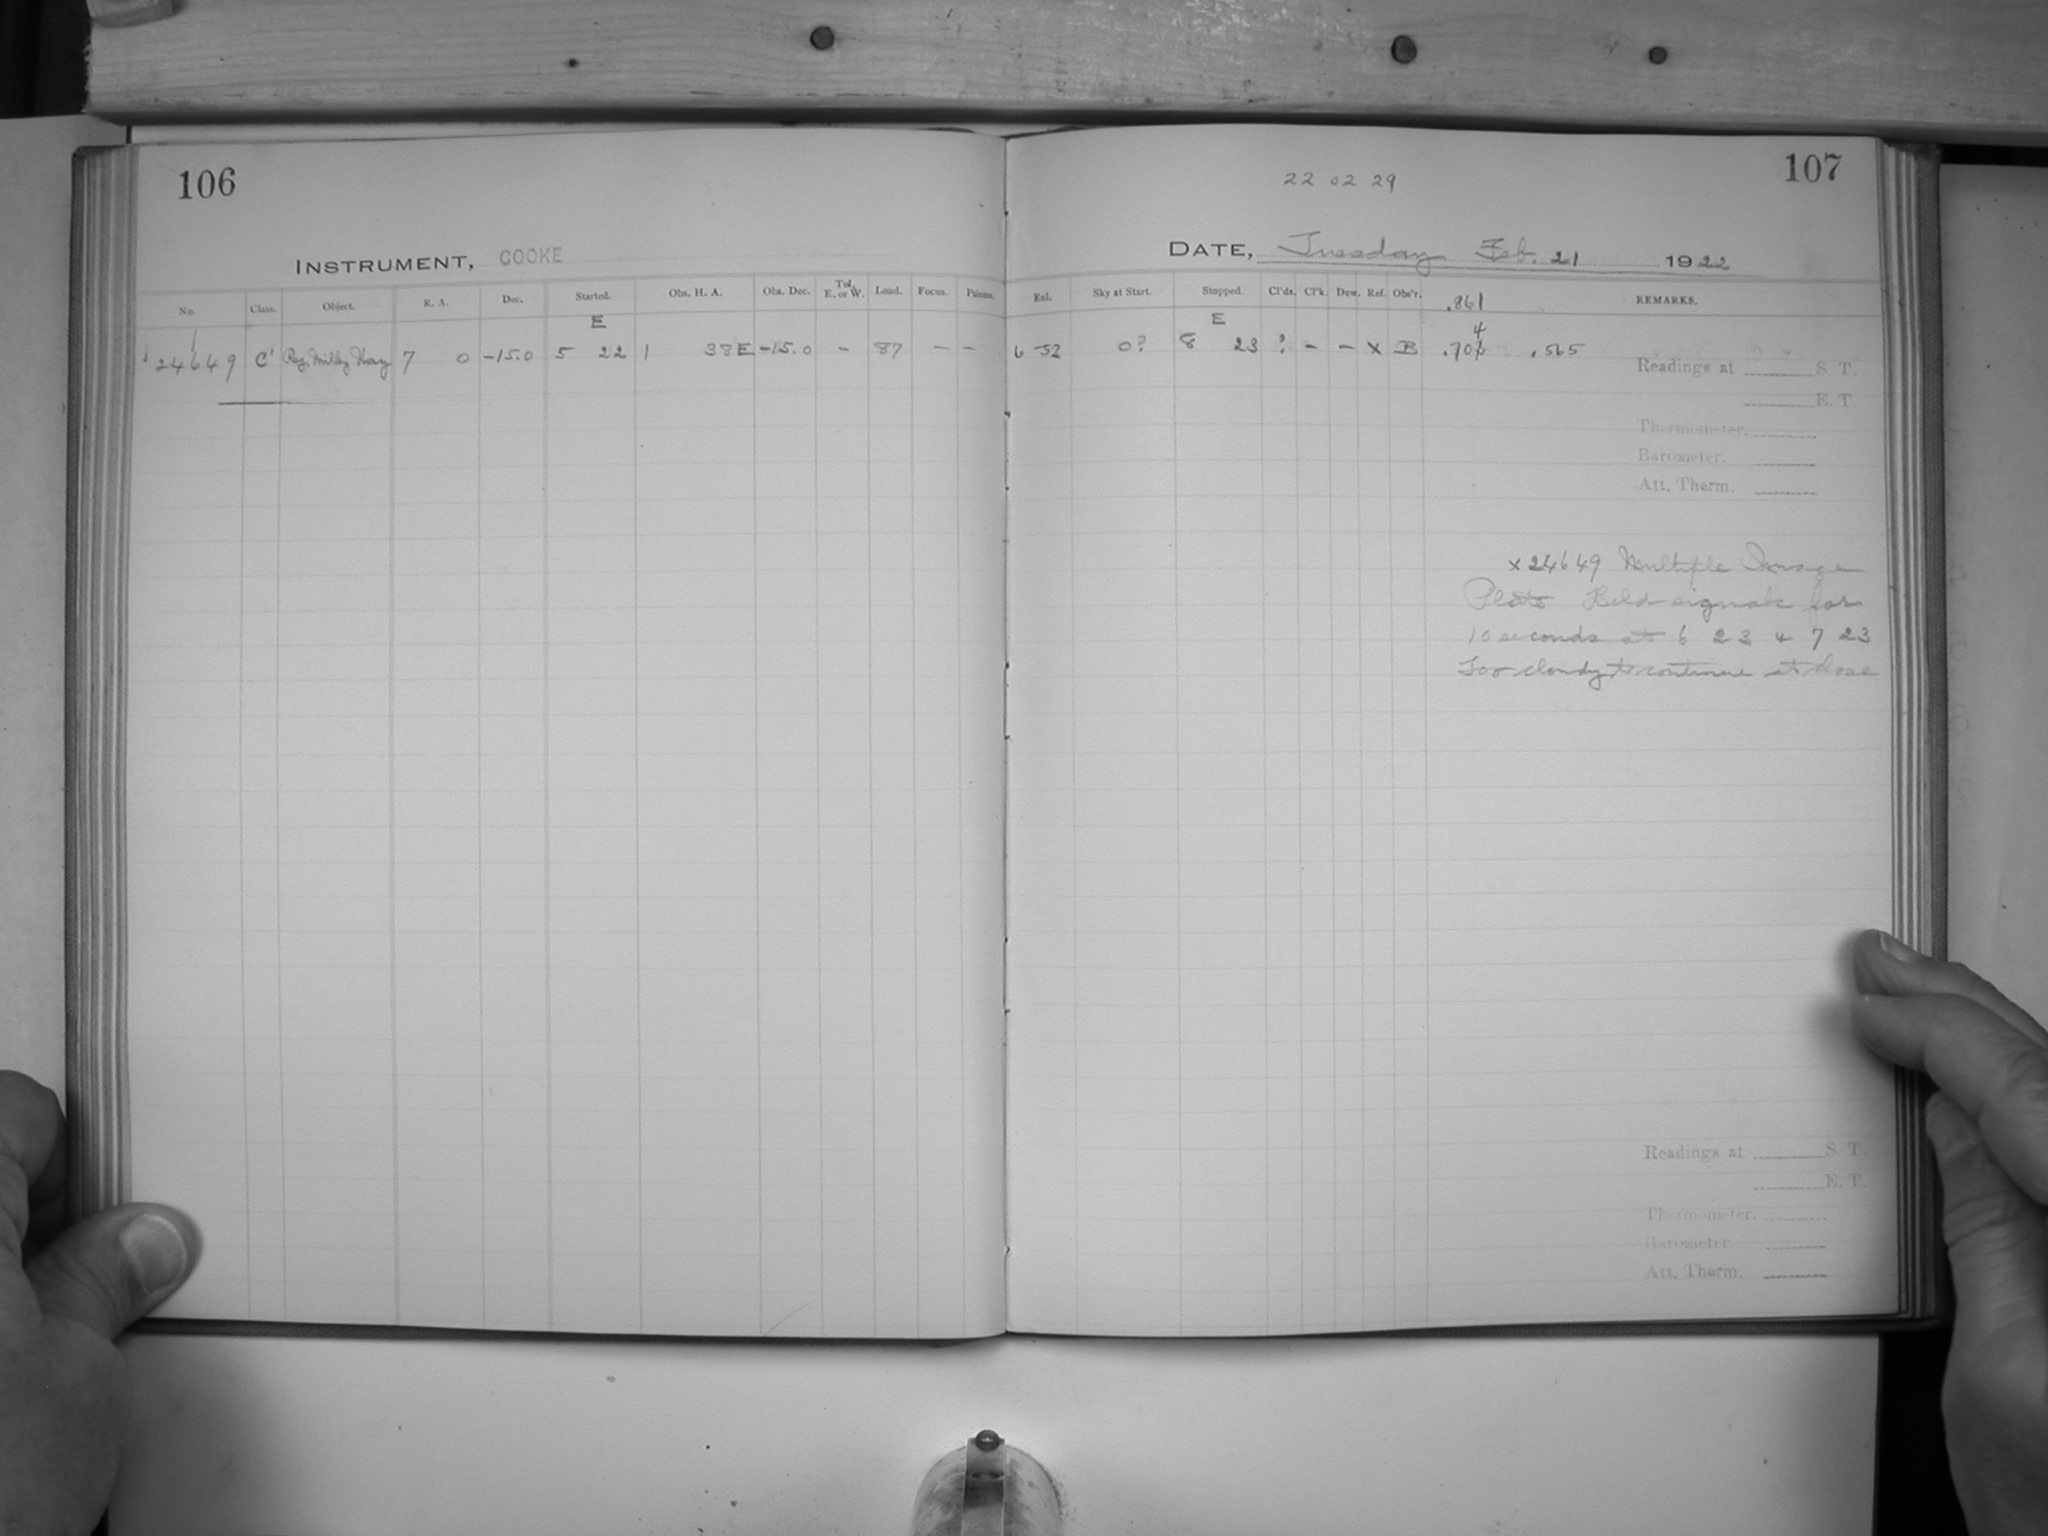 106
INSTRUMENT, COOKE
No. Class. Object. R. A. Dec. Started. Obs. H. A. Obs. Dec. Tel. E. or W. Load. Focus. Prisms.
E
24649 C' Reg. Milky Way 7 0 -15.0 5 22 1 38 E -15.0 - 87 - -
22 02 29
107
DATE, Tuesday Feb. 21 1922
Exl. Sky at Start. Stopped. Cl'ds. Cl'k. Dew. Ref. Obs'r. .861 REMARKS.
E 4
6 52 0? 8 23 ? - - x B .706 .565
Readings at S. T.
E. T.
Thermometer.
Barometer.
Att. Therm.
x 24649 Multiple Image
Plate Held signals for
10 seconds at 6 23 & 7 23
Too cloudy to continue at close
Readings at S. T.
E. T.
Thermometer.
Barometer.
Att. Therm.